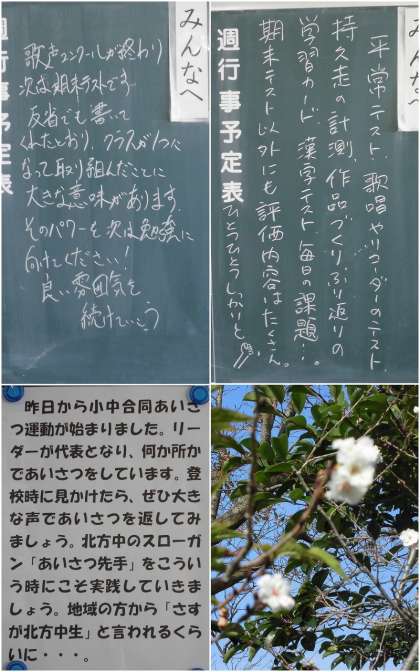 みんなへ
週行事予定表
歌声コンクールが終わり
次は期末テストです
反省でも書いて
くれたとおり、クラスが1つに
なって取り組んだことに
大きな意味があります
そのパワーを次は勉強に
向けてください!
良い雰囲気を
続けていこう
みんな
週行事予定表
平常テスト、歌唱やリコーダーのテスト
持久走の計測、作品づくり、ふり返りの
学習カード、漢字テスト、毎日の課題…。
期末テスト以外にも評価内容はたくさん。
ひとつひとつしっかりと
昨日から小中合同あいさ
つ運動が始まりました。リー
ダーが代表となり、何か所か
であいさつをしています。登
校時に見かけたら、ぜひ大き
な声であいさつを返してみ
ましょう。北方中のスローガ
ン「あいさつ先手」をこうい
う時にこそ実践していきま
しょう。地域の方から「さす
が北方中生」と言われるくら
いに・・・。